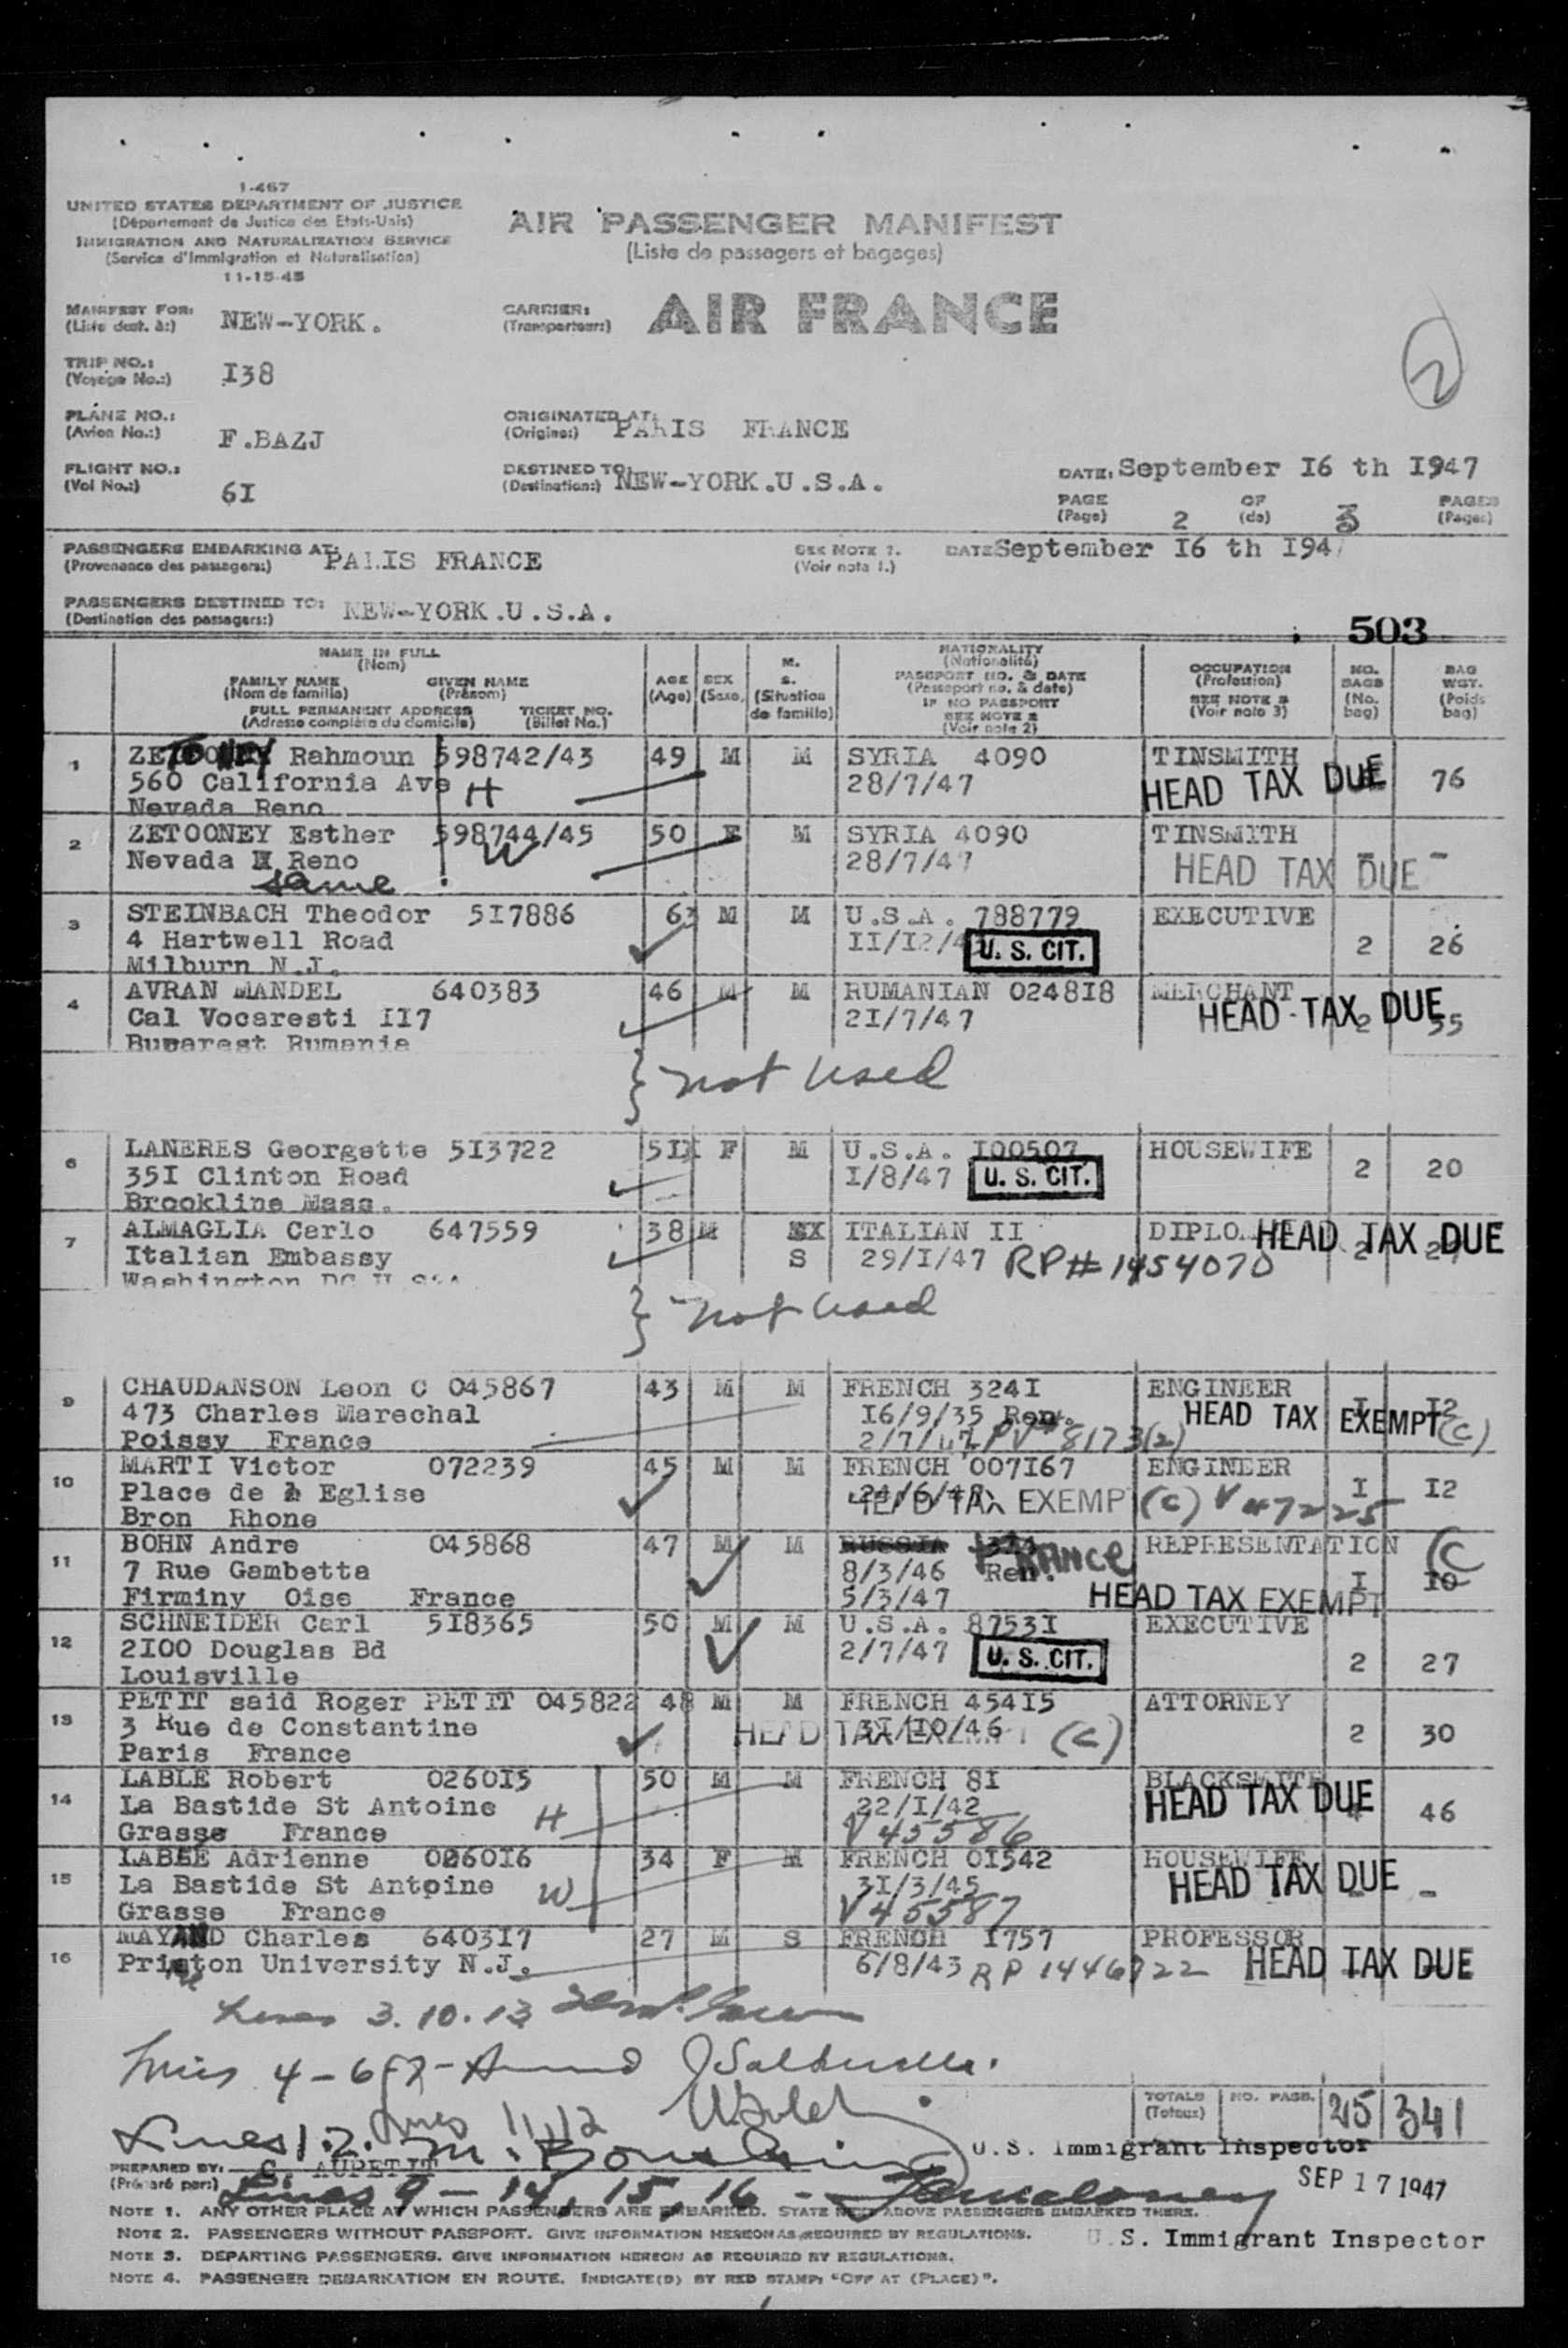 1-467
UNITED STATES DEPARTMENT OF JUSTICE
(Département de Justice des Etats-Unis)
IMMIGRATION AND NATURALIZATION SERVICE
(Service d'Immigration et Naturalisation)
11-15-45
AIR PASSENGER MANIFEST
(Liste de passagers et bagages)
MANIFEST FOR: NEW-YORK.
(Liste dest. à:)
CARRIER: AIR FRANCE
(Transporteur:)
TRIP NO.: I38
(Voyage No.:)
2
PLANE NO.: F.BAZJ
(Avion No.:)
ORIGINATED AT: PARIS FRANCE
(Origine:)
FLIGHT NO.: 6I
(Vol No.:)
DESTINED TO: NEW-YORK.U.S.A.
(Destination:)
DATE: September I6 th I947
PAGE 2 OF 3 PAGES
(Page) (de) (Pages)
PASSENGERS EMBARKING AT: PALIS FRANCE
(Provenance des passagers:)
SEE NOTE 1.
(Voir nota 1.)
DATE September I6 th I94
PASSENGERS DESTINED TO: NEW-YORK.U.S.A.
(Destination des passagers:)
503
NAME IN FULL
(Nom)
FAMILY NAME GIVEN NAME
(Nom de famille) (Prénom)
FULL PERMANENT ADDRESS TICKET NO.
(Adresse complète du domicile) (Billet No.)
AGE
(Age)
SEX
(Sexe)
M.
S.
(Situation
de famille)
NATIONALITY
(Nationalité)
PASSPORT NO. & DATE
(Passeport no. & date)
IF NO PASSPORT
SEE NOTE 2
(Voir note 2)
OCCUPATION
(Profession)
SEE NOTE 3
(Voir note 3)
NO.
BAGS
(No.
bag)
BAG
WGT.
(Poids
bag)
1 ZETOONEY Rahmoun 598742/43 49 M M SYRIA 4090 TINSMITH
560 California Ave H 28/7/47 HEAD TAX DUE 76
Nevada Reno
2 ZETOONEY Esther 598744/45 50 F M SYRIA 4090 TINSMITH
Nevada Reno W 28/7/47 HEAD TAX DUE -
same
3 STEINBACH Theodor 5I7886 63 M M U.S.A. 788779 EXECUTIVE
4 Hartwell Road II/I2/4 U. S. CIT. 2 26
Milburn N.J.
4 AVRAN MANDEL 640383 46 M M RUMANIAN 0248I8 MERCHANT
Cal Vocaresti II7 2I/7/47 HEAD TAX DUE 2 55
Bucarest Rumania
not used
6 LANERES Georgette 5I3722 5I F M U.S.A. I00507 HOUSEWIFE
35I Clinton Road I/8/47 U. S. CIT. 2 20
Brookline Mass.
7 ALMAGLIA Carlo 647559 38 M ITALIAN II DIPLO HEAD TAX DUE
Italian Embassy S 29/I/47 RP# 1454070 2
Washington DC U.S.A
not used
9 CHAUDANSON Leon C 045867 43 M M FRENCH 324I ENGINEER I I2
473 Charles Marechal I6/9/35 Ren. HEAD TAX EXEMPT (C)
Poissy France 2/7/47 PV# 8173(2)
10 MARTI Victor 072239 45 M M FRENCH 007I67 ENGINEER
Place de Eglise HEAD TAX EXEMP (C) V 47225 I I2
Bron Rhone
11 BOHN Andre 045868 47 M M RUSSIA FRANCE REPRESENTATION (C
7 Rue Gambetta 8/3/46 Ren. I I0
Firminy Oise France 5/3/47 HEAD TAX EXEMPT
12 SCHNEIDER Carl 5I8365 50 M M U.S.A. 8753I EXECUTIVE
2I00 Douglas Bd 2/7/47 U. S. CIT. 2 27
Louisville
13 PETIT said Roger PETIT 045822 48 M M FRENCH 454I5 ATTORNEY
3 Rue de Constantine HEAD TAX 3I/I0/46 (C) 2 30
Paris France
14 LABLE Robert 0260I5 50 M M FRENCH 8I BLACKSMITH
La Bastide St Antoine H 22/I/42 HEAD TAX DUE 46
Grasse France V 45586
15 LABLE Adrienne 0260I6 34 F M FRENCH 0I542 HOUSEWIFE
La Bastide St Antoine W 3I/3/45 HEAD TAX DUE -
Grasse France V 45587
16 MAYAND Charles 6403I7 27 M S FRENCH I757 PROFESSOR
Princton University N.J. 6/8/43 RP 1446922 HEAD TAX DUE
Lines 3.10.13
Lines 4-6
Lines 11,12
TOTALS
(Totaux)
NO. PASS. 25 341
Lines 1.2.
U.S. Immigrant Inspector
PREPARED BY: C. AUPETIT
(Préparé par:)
Lines 9-14, 15, 16 -
SEP 17 1947
U.S. Immigrant Inspector
NOTE 1. ANY OTHER PLACE AT WHICH PASSENGERS ARE EMBARKED. STATE NEXT ABOVE PASSENGERS EMBARKED THERE.
NOTE 2. PASSENGERS WITHOUT PASSPORT. GIVE INFORMATION HEREON AS REQUIRED BY REGULATIONS.
NOTE 3. DEPARTING PASSENGERS. GIVE INFORMATION HEREON AS REQUIRED BY REGULATIONS.
NOTE 4. PASSENGER DEBARKATION EN ROUTE. INDICATE(D) BY RED STAMP: "OFF AT (PLACE)".